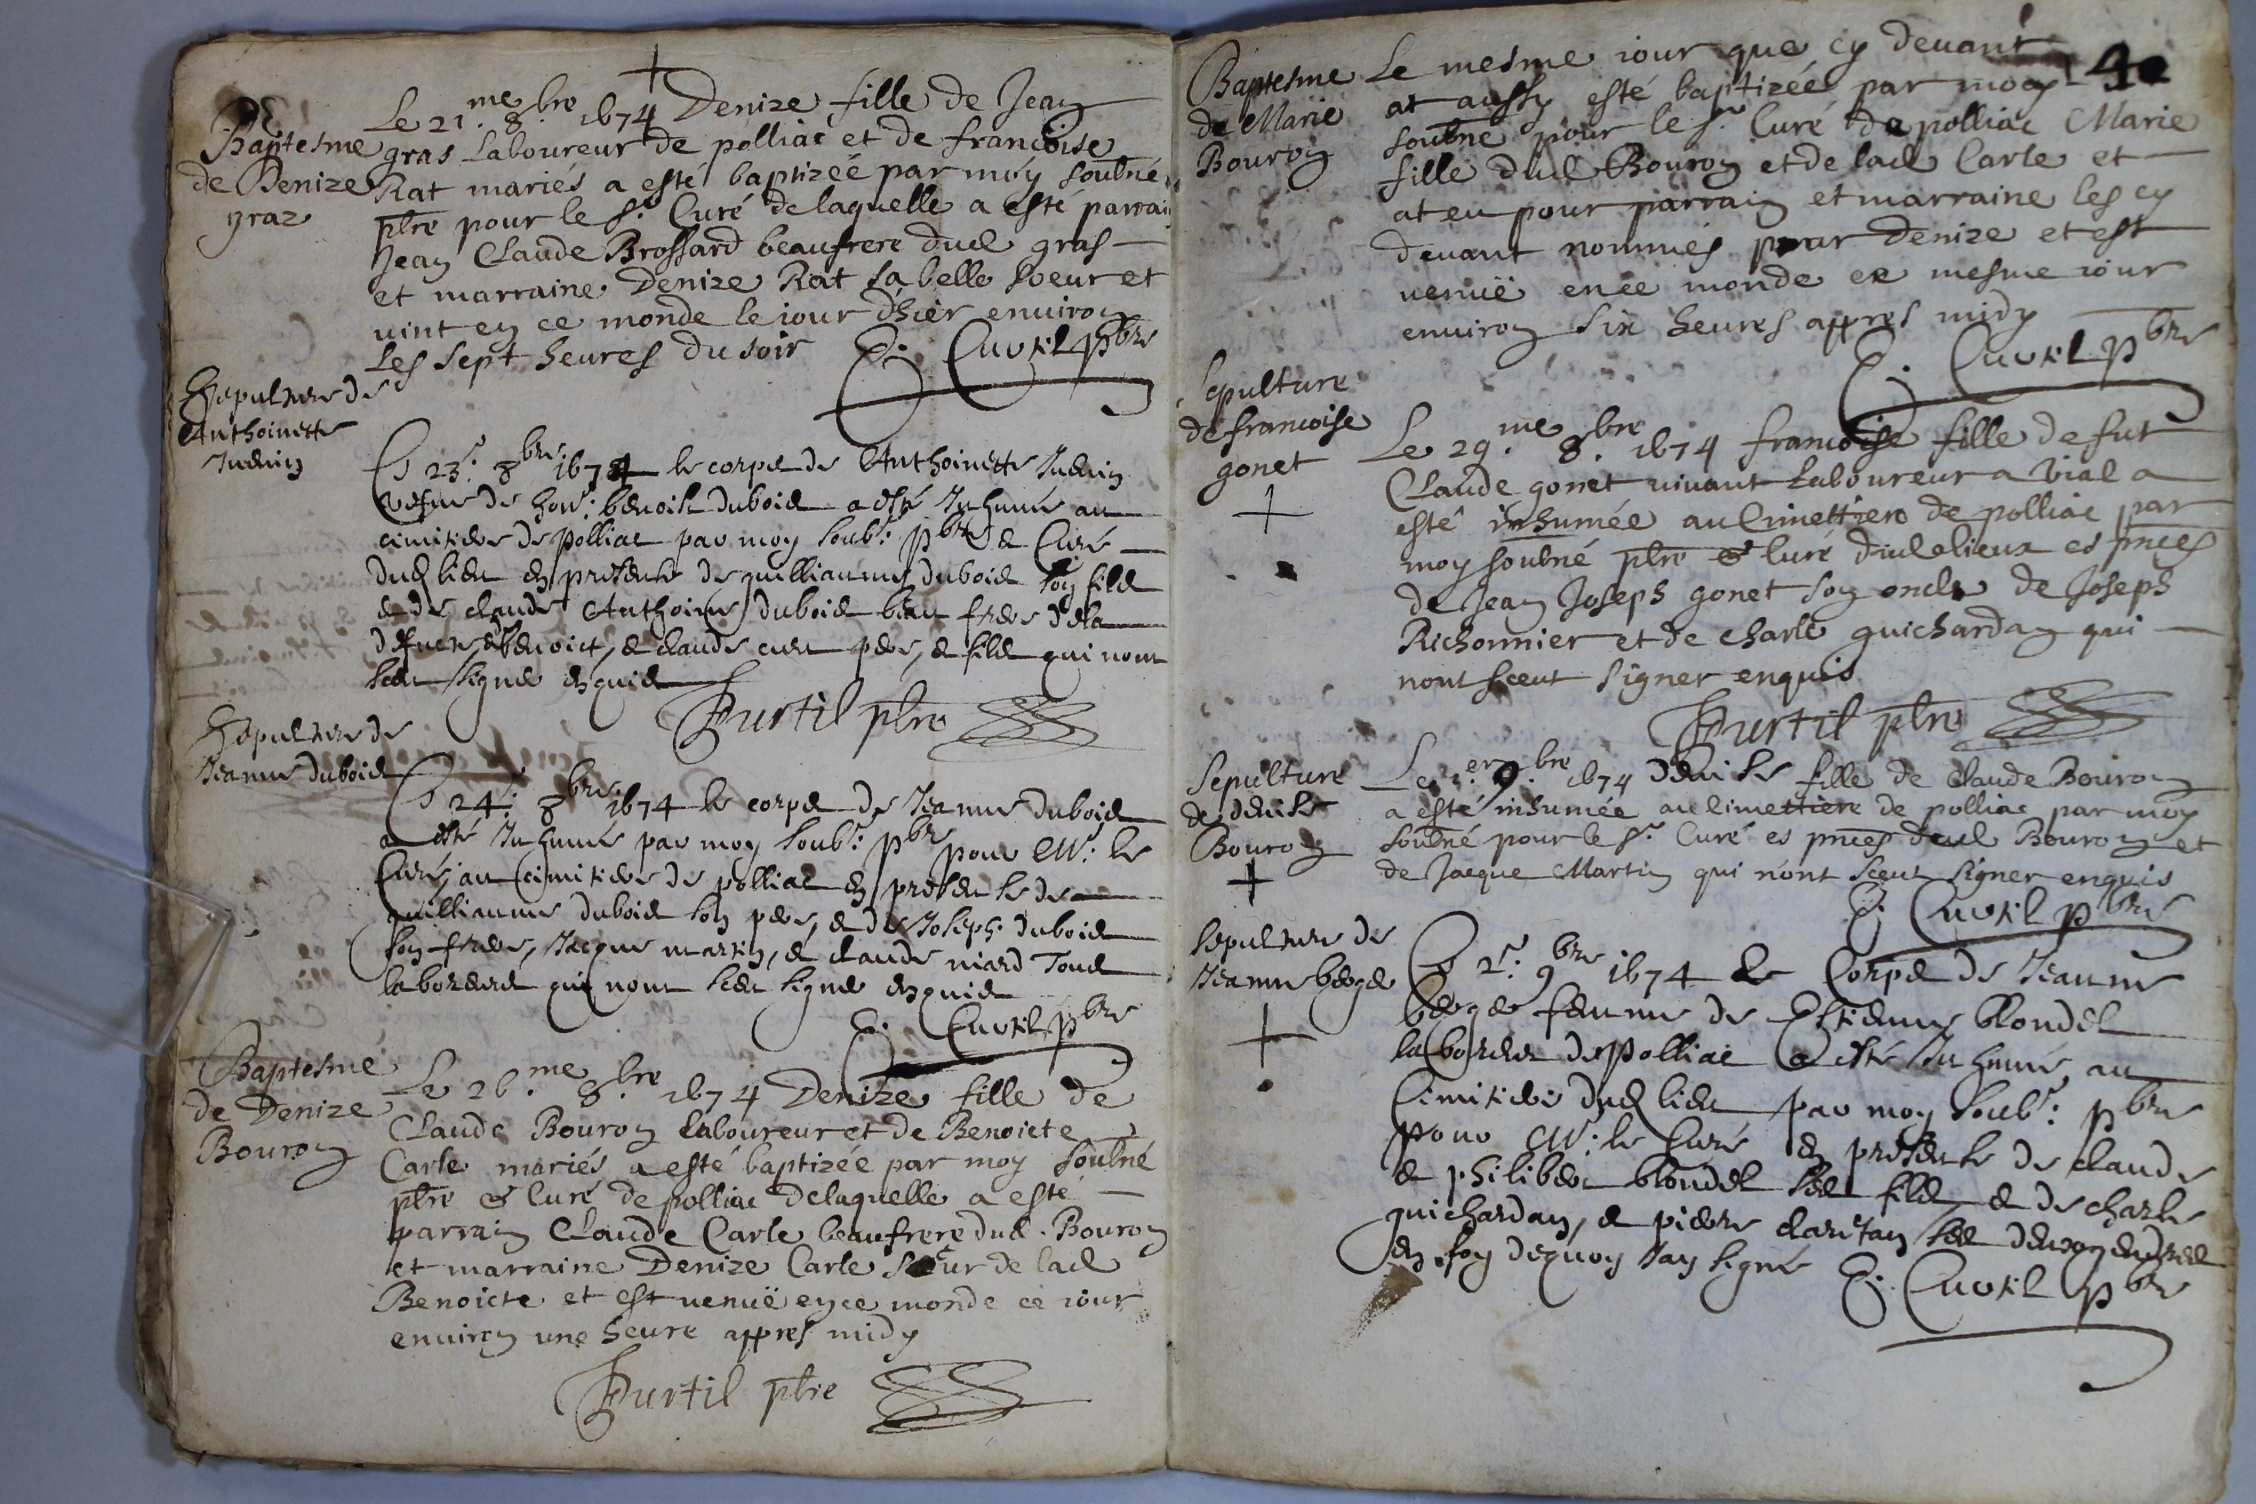 Baptesme
de Denize
graz
Le 21.me 8.bre 1674 Denize fille de Jean
gras Laboureur de polliac et de francoise
Rat mariés a este baptizeé par moy soubné
pbre pour le sr. Curé de laquelle a esté parrain
Jean Claude Brossard beaufrere dud gras
et marraine Denize Rat sa belle soeur et
vint en ce monde le iour dhier environ
Les sept heures du soir E. Curtil pbre
Sepulture de
Anthoinette
Le 23e. 8bre. 1674 le corps de Anthoinette
vefve de hon.: benoist dubois a esté Inhumé au
cimitiere de polliac par moy soub.r: pbre & Curé
dud lieu en presence de guilliaume dubois son fils
& de claude Anthoine dubois beau frere dela
benoict, & claude pere, & fils qui nont
sceu signe enquis
Curtil pbre
Sepulture de
Jeanne dubois
Le 24e. 8bre. 1674 le corps de Jeanne dubois
a esté Inhumé par moy soub.r: pbre pour Mr. le
Curé, au Cimitiere de polliac en presence de
guilliaume dubois son pere, & de Joseph dubois
son frere, Jacque martin, & claude niard Tous
laboreurs qui nont sceu signe enquis
E. Curtil pbre
Baptesme
de Denize
Bouron
Le 26.me 8.bre 1674 Denize fille de
Claude Bouron Laboureur et de Benoicte
Carle mariés a esté baptizée par moy soubné
pbre & Curé de polliac delaquelle a esté
parrain Claude Carle beaufrere dud. Bouron
et marraine Denize Carle soeur de lad
Benoicte et est venuë en ce monde ce iour
environ une heure appres midy
Curtil pbre
Baptesme
de Marie
Bouron
Le mesme iour que cy devant
at aussy esté baptizée par moy
soubné pour le sr. Curé de polliac Marie
fille dud Bouron et de lad Carle et
at eu pour parrain et marraine les cy
devant nommés pour Denize et est
venuë ence monde ce mesme iour
environ six heures appres midy
E. Curtil pbre
Sepulture
de francoise
gonet
Le 29.me 8.bre 1674 francoise fille de fut
Claude gonet vivant Laboureur a Vial a
esté inhumée au Cimettiere de polliac par
moy soubné pbre & Curé dud lieux es pnces
de Jean Joseph gonet son oncle de Joseph
Richonnier et de Charle guichardan qui
nont sceut signer enquis
Curtil pbre
Sepulture
de denise
Bouron
Le 1.er 9.bre 1674 denise fille de Claude Bouron
a esté inhumée au Cimettiere de polliac par moy
soubné pour le sr. Curé es pnces dud Bouron et
de Jacque Martin qui nont sceut signer enquis
E. Curtil pbre
Sepulture de
Jeanne berge
Le 2e. 9bre 1674 Le Corps de Jeanne
berge femme de Estienne blondel
laboreur de polliac a esté Inhumé au
Cimitiere dud lieu par moy soub.r: pbre
pour Mr. le Curé en presence de claude
& philibert blondel ses fils & de charle
guichardan, & pierre claritan ses deux gendres
en foy dequoy Jay signé E. Curtil pbre